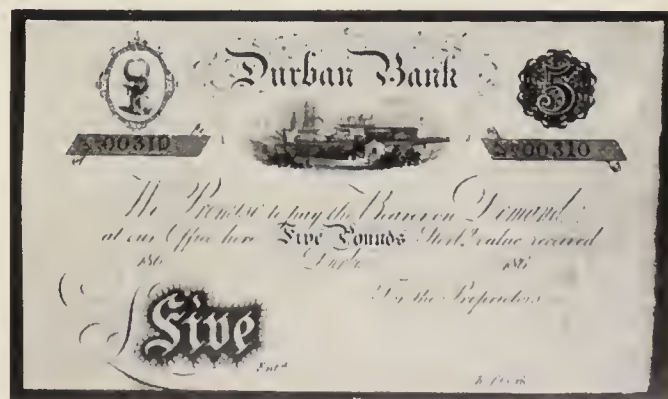 £5 Durban Bank 5
No 00310 No 00310
We Promise to pay the Bearer on Demand
at our Office here Five Pounds Sterl.g value received
186 186
For the Proprietors
£Five
Ent.d